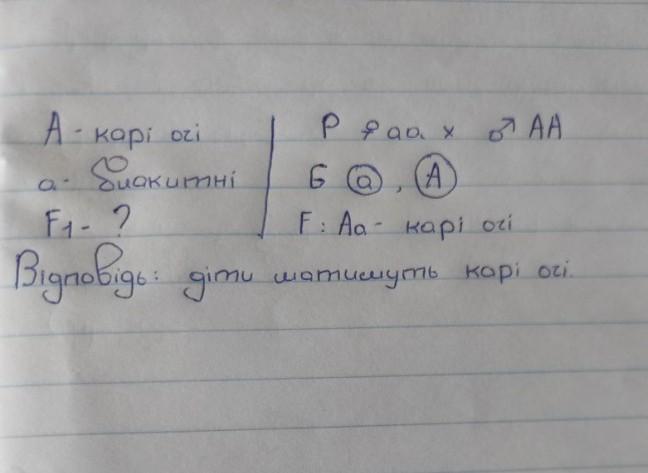 А - карі очі
а - блакитні
F1 - ?
Р ♀ аа х ♂ АА
G а, А
F: Аа - карі очі
Відповідь: діти матимуть карі очі.